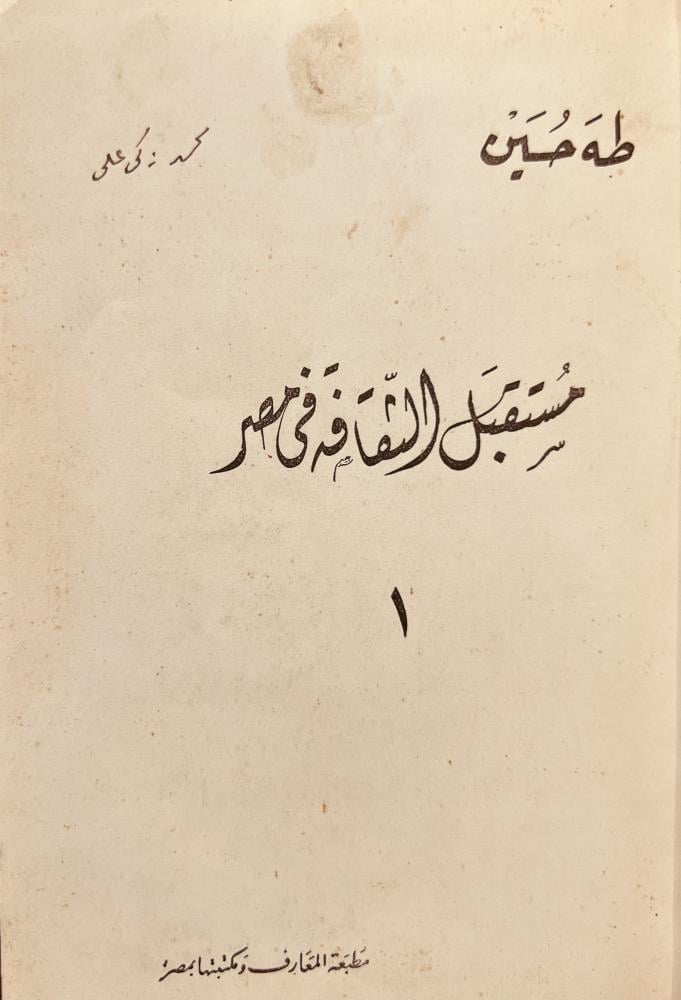 طهَ حُسَيْن
محمد زكى على
مُستقبَل الثّقَافَة فى مصر
١
مَطبعَة المعَارف وَمكتبتها بمصر